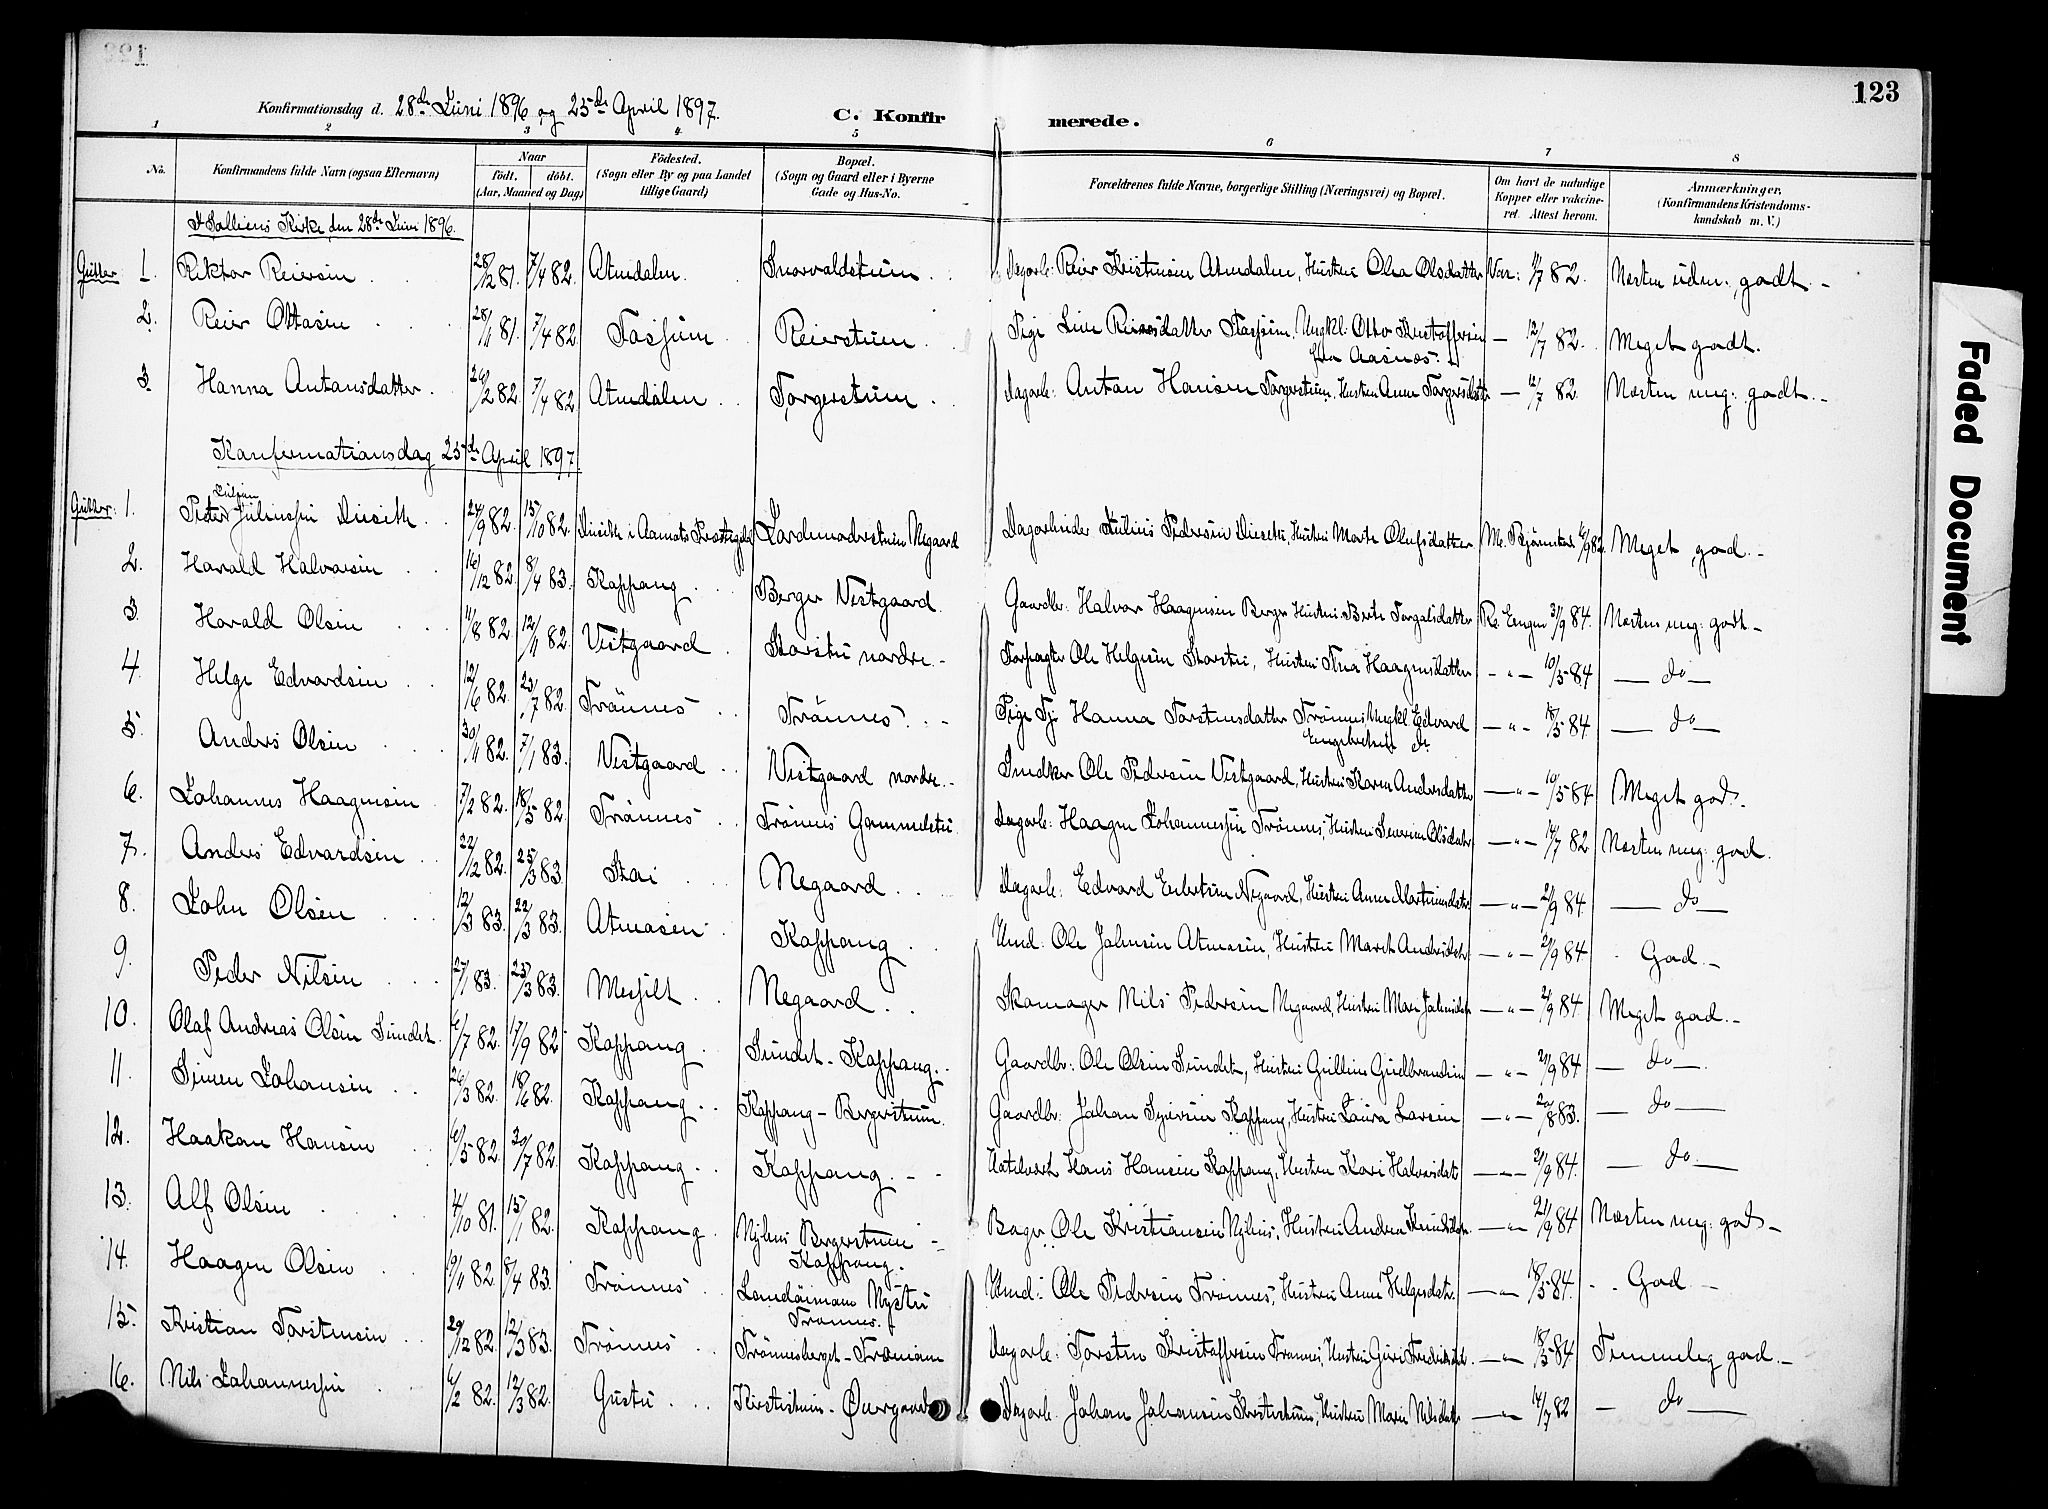 123
Konfirmationsdag d. 28de Juni 1896 og 25de April 1897.
C. Konfirmerede.
1 2 3 4 5 6 7 8
No. Konfirmandens fulde Navn (ogsaa Efternavn) Naar født. døbt. (Aar, Maaned og Dag) Fødested. (Sogn eller By og paa Landet tillige Gaard) Bopæl. (Sogn og Gaard eller i Byerne Gade og Hus-No. Forældrenes fulde Navne, borgerlige Stilling (Næringsvei) og Bopæl. Om havt de naturlige Kopper eller vakcineret. Attest herom. Anmærkninger, (Konfirmandens Kristendomskundskab m. V.)
I Solliens Kirke den 28de Juni 1896.
Gutter 1. Rektor Reiersen 28/12 81. 7/4 82. Atnedalen Snorvaldstuen Dagarb: Reier Kristensen Atnedalen, Hustru Olea Olsdatter Vac: 11/7 82. Næsten uden: godt.-
2. Reier Ottosen 28/11 81. 7/4 82 Fossum Reierstuen. Pige Line Reiersdatter Fossum. Ungkl. Otto Kristoffersen fra Aasnæs. — 12/7 82. Meget godt.
3. Hanna Antonsdatter. 26/2 82. 7/4 82 Atnedalen Torgerstuen Dagarb: Anton Hansen Torgerstuen. Hustru Anne Torgersdatter — 12/7 82. Næsten meg: godt.-
Konfirmationsdag 25de April 1897.
Gutter: 1. Peder Julian Juliussen Diseth 24/9 82. 15/10 82. Diseth i Aamots Præstegjeld Negaard Dagarbeider Julius Pedersen Diseth, Hustru Marte Olufsdatter 6/9 82. Meget god.-
2. Harald Halvorsen 16/12 82. 8/4 83. Koppang Berger Vestgaard. Gaardbr: Halvor Haagensen Berger Hustru Berte Torgalsdatter 3/9 84. Næsten meg: godt-
3. Harald Olsen 11/8 82. 12/11 82. Vestgaard Storstu nordre.- Forpagter Ole Helgesen Storstu, Hustru Tina Haagensdatter - " - 10/5 84 — do —
4. Helge Edvardsen 12/6 82. 23/7 82. Trønnes Trønnes. Pige Hanna Torstensdatter Trønnes Ungkl Edvard Engebretsen do — " - 18/5 84 — do —
5. Anders Olsen 30/11 82. 7/1 83. Vestgaard Vestgaard nordre.- Snedker Ole Pedersen Vestgaard, Hustru Karen Andersdatter — " - 10/5 84 Meget god.-
6. Johannes Haagensen 7/2 82. 18/5 82. Trønnes Trønnes Gammelstu. Dagarb: Haagen Johannessen Trønnes, Hustru Severine Olsdatr — " - 14/7 82 Næsten meg: god.
7. Anders Edvardsen 22/12 82. 25/3 83. Stai Negaard Dagarb: Edvard Negaard, Hustru Anne Martinusdatr — " - 2/9 84. — do —
8. John Olsen 12/3 83. 22/3 83. Atnaosen Koppang Ole Johnsen Atnaosen, Hustru Maret Andersdatr — " - 2/9 84. God.-
9. Peder Nilsen 27/1 83. 23/3 83. Messelt Negaard Skomager Nils Pedersen Negaard, Hustru Mari Johnsdatr — " - 2/9 84. Meget god.-
10. Olaf Andreas Olsen Sundet. 6/7 82. 17/9 82 Koppang Sundet - Koppang. Gaardbr: Ole Olsen Sundet, Hustru Gulline Gudbrandsen — " - 2/9 84 — do —
11. Simen Johansen 26/3 82. 18/6 82. Koppang Koppang - Bergerstuen. Gaardbr: Johan Syversen Koppang, Hustru Laura Larsen — " - 20/8 83. — do —
12. Haakon Hansen 6/5 82. 30/7 82. Koppang Koppang. Hans Hansen Koppang, Hustru Kari Halvorsdatr — " - 2/9 84. — do —
13. Alf Olsen 4/10 81. 15/1 82. Koppang Nylins Bergerstuen - Koppang. Bager Ole Kristiansen Nylins, Hustru Andrea Knudsdatr. — " 21/9 84 Næsten meg: god -
14. Haagen Olsen 19/11 82. 8/4 83. Trønnes Nystu Trønnes. Ole Pedersen Trønnes, Hustru Anne Helgesdatr. — " 18/5 84. God -
15. Kristian Torstensen 29/12 82. 12/3 83. Trønnes Trønnesberget - Dagarb: Torsten Kristoffersen Trønnes, Hustru Guri — " 18/5 84 Temmelig god.-
16. Nils Johannessen 6/2 82. 12/3 82. Gustu Øvergaard Dagarb: Johan Johansen Hustru Marie Nilsdatr — " 14/7 82 — do —
Faded Document